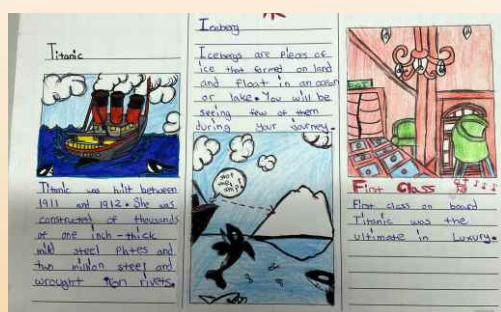 Titanic
Titanic was bilt between
1911 and 1912. She was
constructed of thousands
of one inch-thick
mild steel plates and
two million steel and
wrought iron rivets.
Iceberg
Icebergs are pieces of
ice that formed on land
and float in an ocean
or lake. You will be
seeing few of them
during your journey.
First Class
First class on board
Titanic was the
ultimate in Luxury.